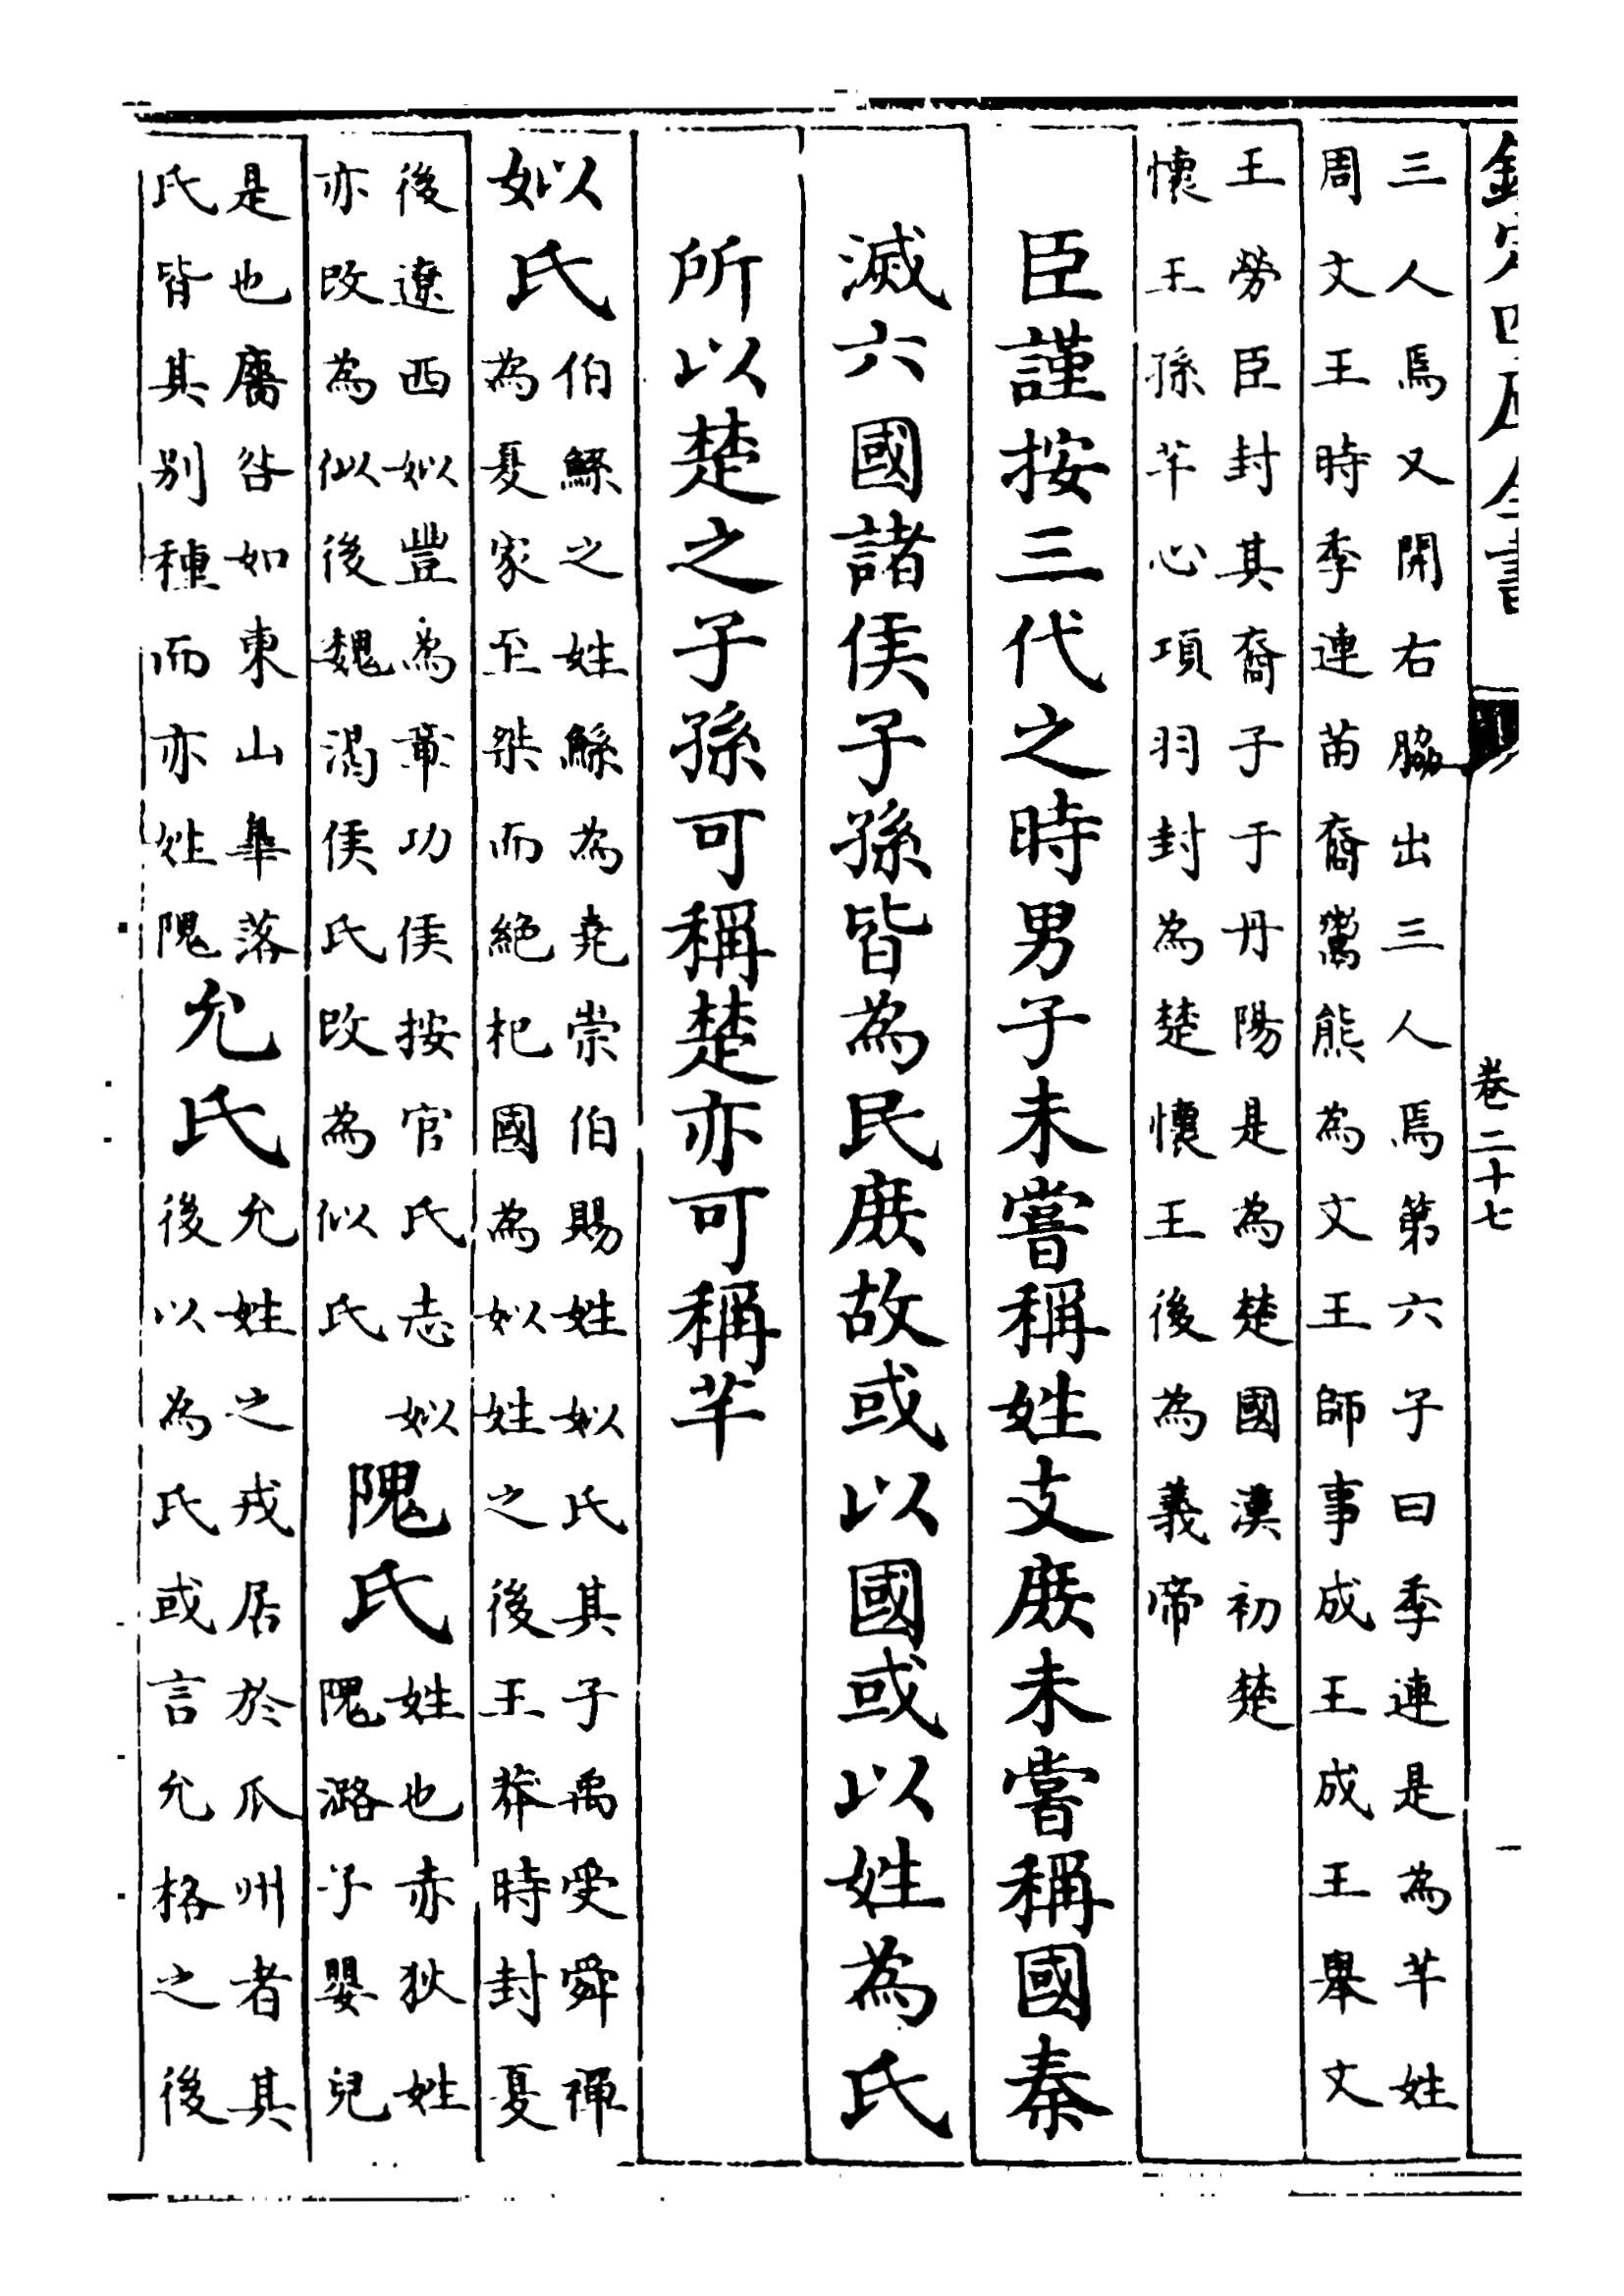 欽定四庫全書
卷二十七
三人焉又開右脇出三人焉第六子曰季連是為芊姓
周文王時季連苗裔鬻熊為文王師事成王成王舉文
王勞臣封其裔子于丹陽是為楚國漢漢初楚
懷王王孫芊心項羽封為楚懷王後為義帝
臣謹按三代之時男子未嘗稱姓支庻未嘗稱國秦
滅六國諸侯子孫皆為民庻故或以國或以姓為氏
所以楚之子孫可稱楚亦可稱芊
姒氏
伯鯀之姓鯀為堯崇伯賜姓姒氏其子禹受舜禪
為夏家至桀而絕杞國為姒姓之後王莽時封夏
後遼西姒豐為章功侯按官氏志姒
亦改為似後魏渴侯氏改為似氏
隗氏
姓也赤狄姓
隗潞子嬰兒
是也廧咎如東山臯落
氏皆其别種而亦姓隗
允氏
允姓之戎居於瓜州者其
後以為氏或言允格之後